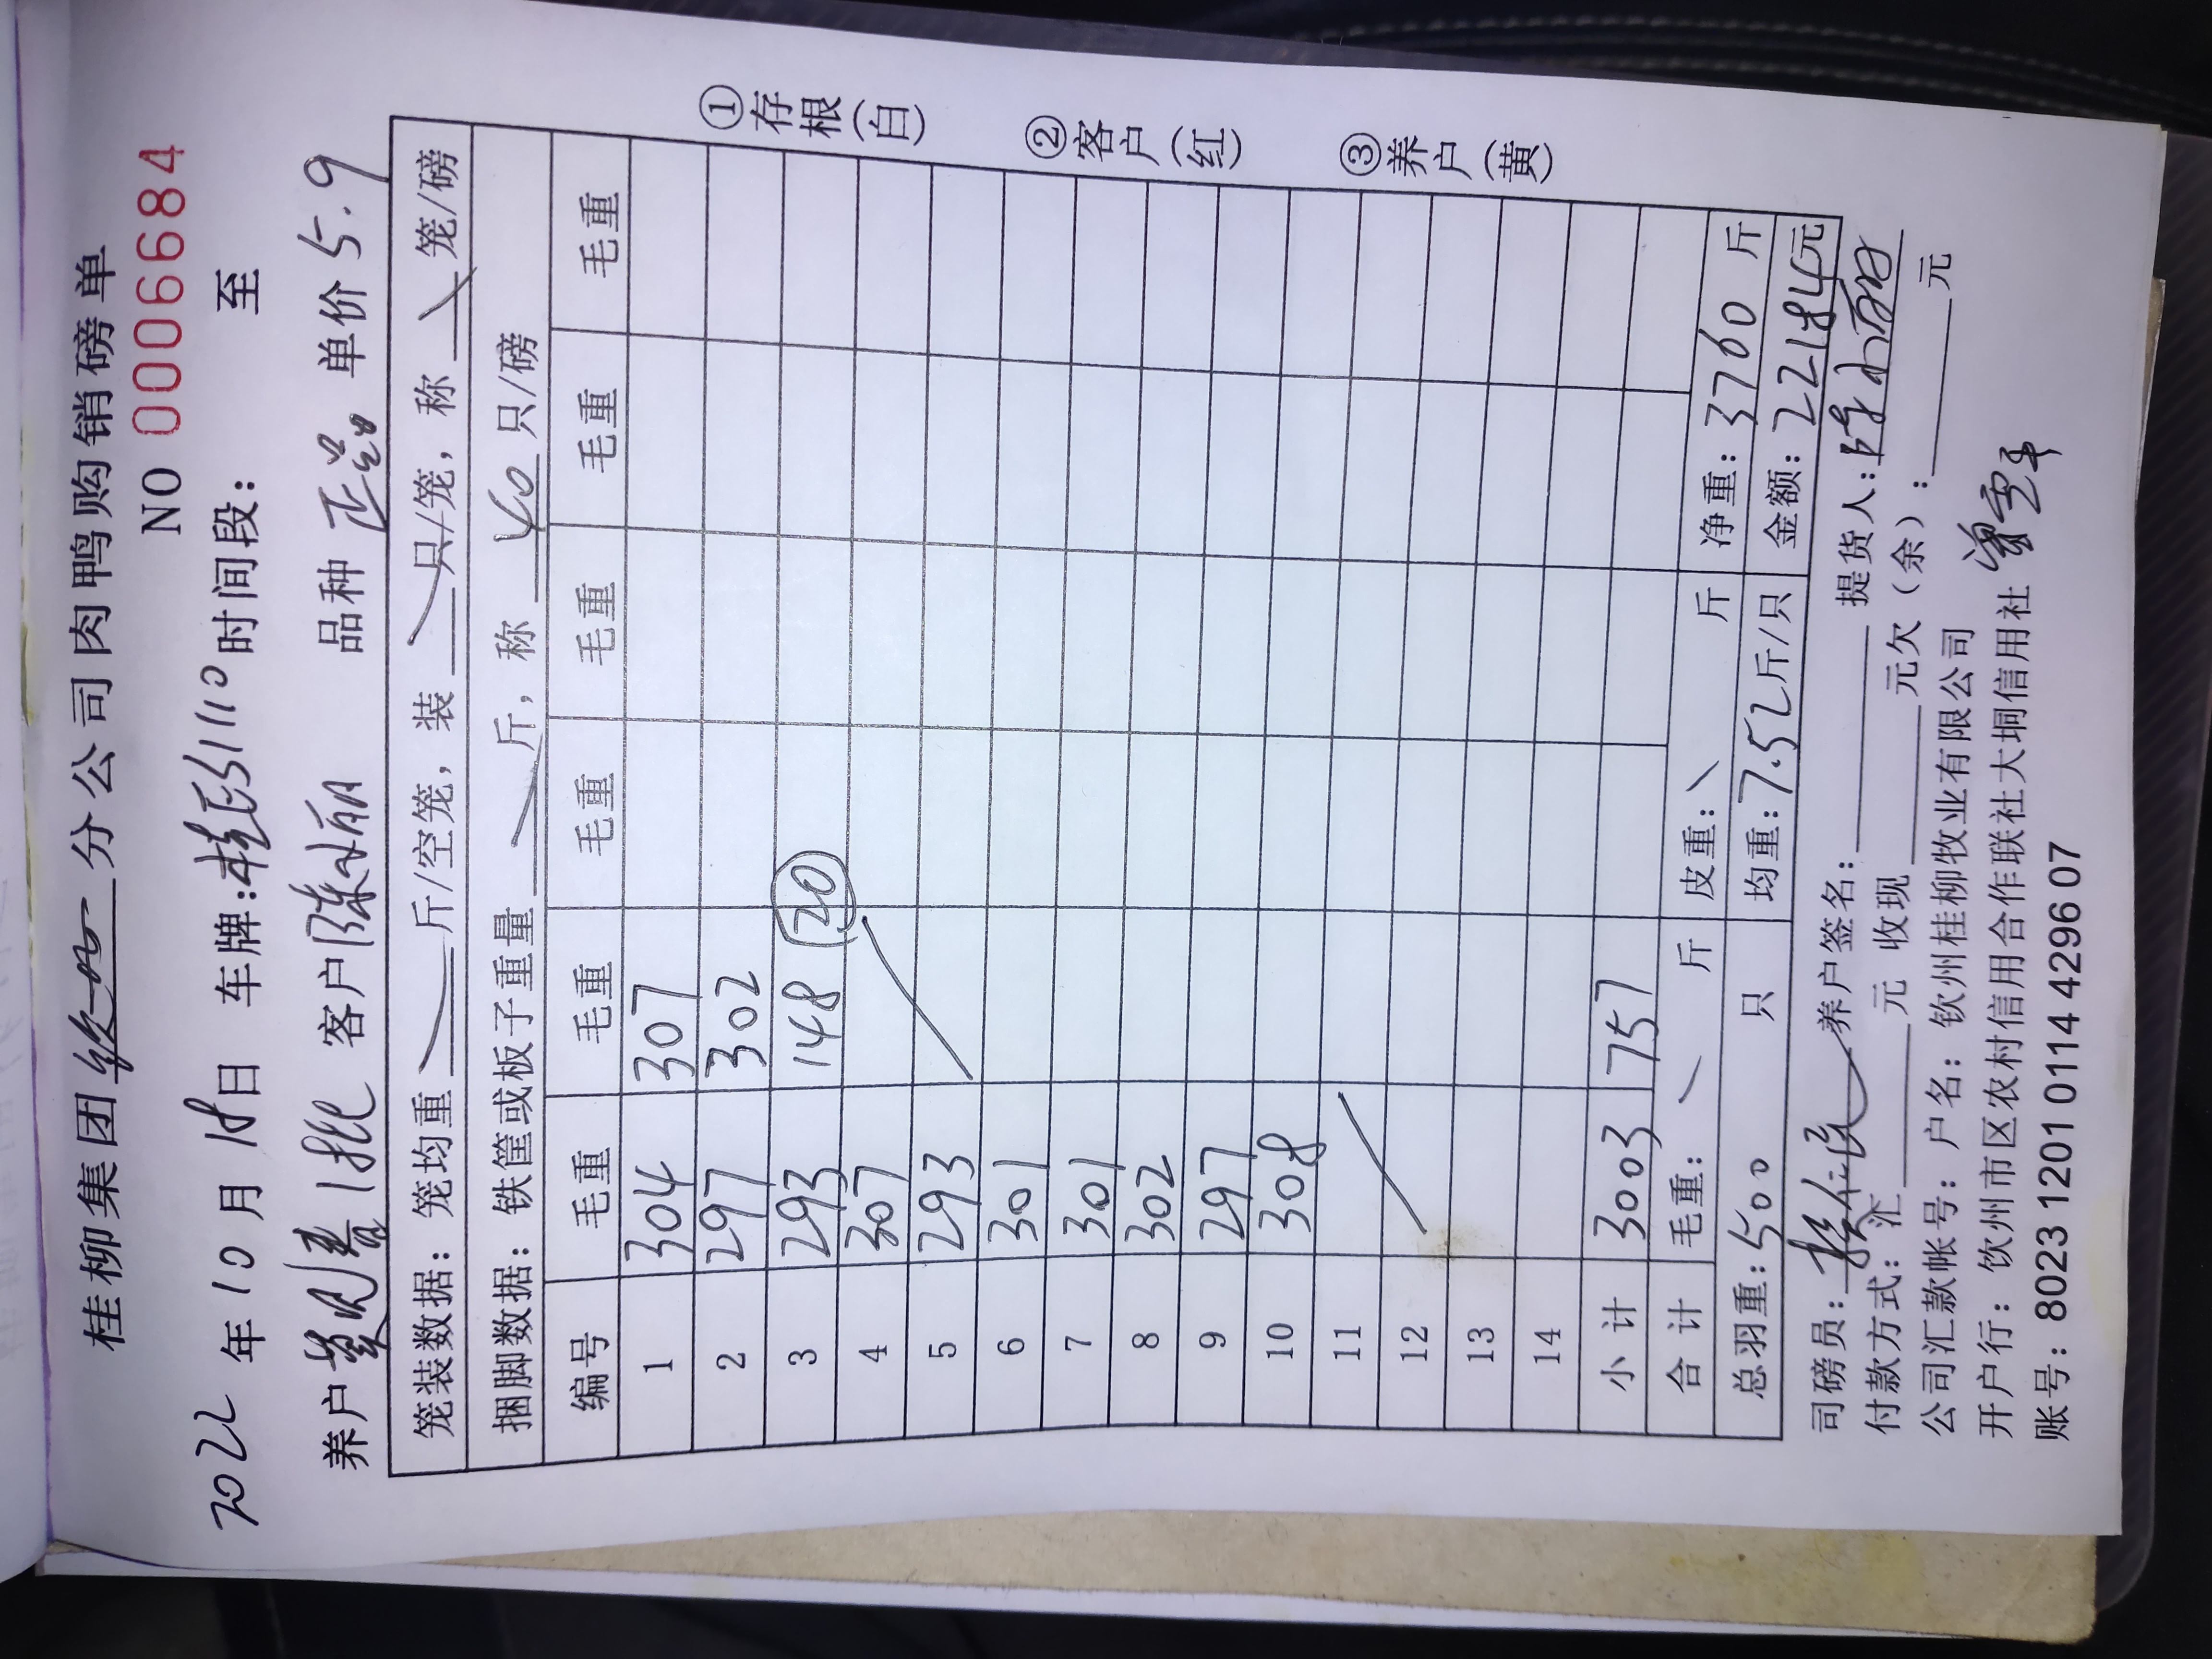 桂柳集团分公司肉鸭购销磅单
NO 0006684
2022年10月18日 车牌:桂E51110时间段: 至
养户黄明春1批 客户陈小丽 品种 正常 单价5.9
笼装数据:笼均重 斤/空笼,装 只/笼,称 笼/磅
捆脚数据:铁筐或板子重量 斤,称 40 只/磅
编号 毛重 毛重 毛重 毛重 毛重 毛重
1 304 307
2 297 302
3 293 148 (20)
4 307
5 293
6 301
7 301
8 302
9 297
10 308
11
12
13
14
小计 3003 757
合计 毛重: 斤 皮重: 斤 净重:3760 斤
总羽重:500 只 均重:7.52斤/只 金额:22184元
司磅员: 养户签名: 提货人:陈小丽
付款方式:汇 元 收现 元欠(余): 元
公司汇款帐号:户名:钦州桂柳牧业有限公司
开户行:钦州市区农村信用合作联社大垌信用社
账号:8023 1201 0114 4296 07
①存根(白)
②客户(红)
③养户(黄)